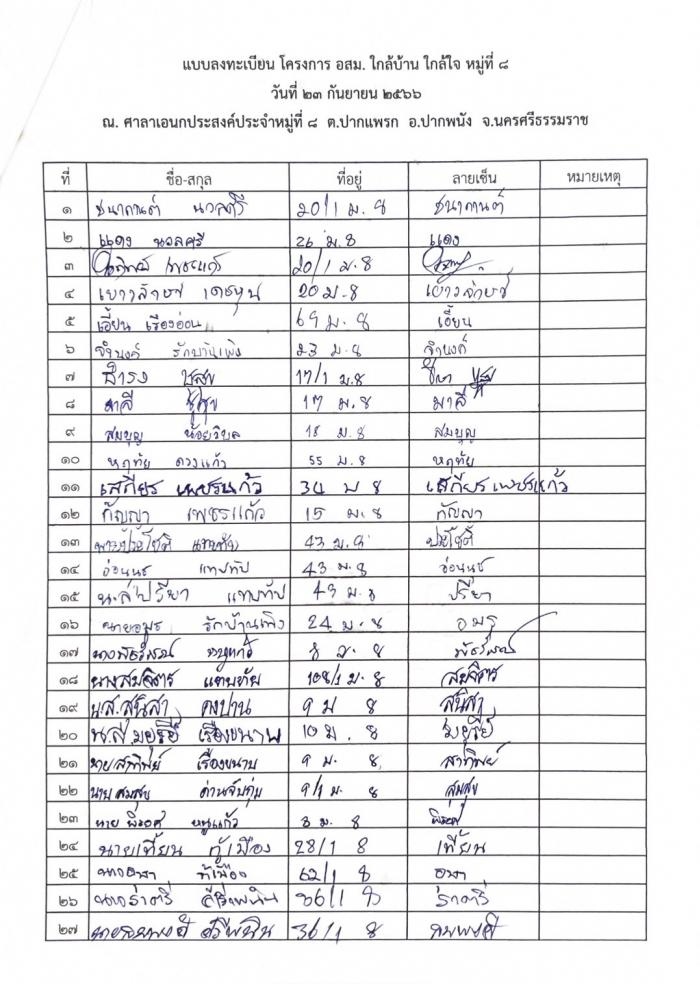 แบบลงทะเบียน โครงการ อสม. ใกล้บ้าน ใกล้ใจ หมู่ที่ ๘
วันที่ ๒๓ กันยายน ๒๕๖๖
ณ. ศาลาเอนกประสงค์ประจำหมู่ที่ ๘ ต.ปากแพรก อ.ปากพนัง จ.นครศรีธรรมราช
ที่ ชื่อ-สกุล ที่อยู่ ลายเซ็น หมายเหตุ
๑ ชนากานต์ นวลศรี 20/1 ม.8 ชนากานต์
๒ แดง นวลศรี 26 ม.8 แดง
๓ เพชรแก้ว 20/1 ม.8
๔ เยาวลักษณ์ เดชหุน 20 ม.8 เยาวลักษณ์
๕ เอี้ยน เรืองอ่อน 69 ม.8 เอี้ยน
๖ จำนงค์ รักบ้านเพิง 23 ม.8 จำนงค์
๗ ธำรง ชูสุข 17/1 ม.8
๘ มาลี ชูสุข 17 ม.8 มาลี
๙ สมบุญ น้อยวิบล 18 ม.8 สมบุญ
๑๐ หฤทัย ดวงแก้ว 55 ม.8 หฤทัย
๑๑ เสถียร เพชรแก้ว 34 ม 8 เสถียร เพชรแก้ว
๑๒ กัญญา เพชรแก้ว 15 ม.8 กัญญา
๑๓ แทบทับ 43 ม.8
๑๔ อ่อนนช แทบทับ 43 ม.8 อ่อนนช
๑๕ น.ส ปรียา แทบทับ 43 ม.8 ปรียา
๑๖ รักบ้านเพิง 24 ม.8
๑๗ หนูแก้ว 8 ม.8
๑๘ นางสมจิตร แทบทับ 108/1 ม.8 สมจิตร
๑๙ น.ส.สนิสา คงปาน 9 ม 8 สนิสา
๒๐ น.ส.มยุรีย์ เรืองขนาบ 10 ม. 8 มยุรีย์
๒๑ นายสาทิพย์ เรืองขนาบ 9 ม. 8 สาทิพย์
๒๒ นายสมสุข ด่านจับกุ่ม 9/1 ม. 8 สมสุข
๒๓ นาย หนูแก้ว 8 ม. 8
๒๔ นายเที้ยน ทู้เมือง 28/1 8 เที้ยน
๒๕ 62/1 8
๒๖ นางราตรี ศรีพนิน 36/1 8 ราตรี
๒๗ ศรีพนิน 36/1 8